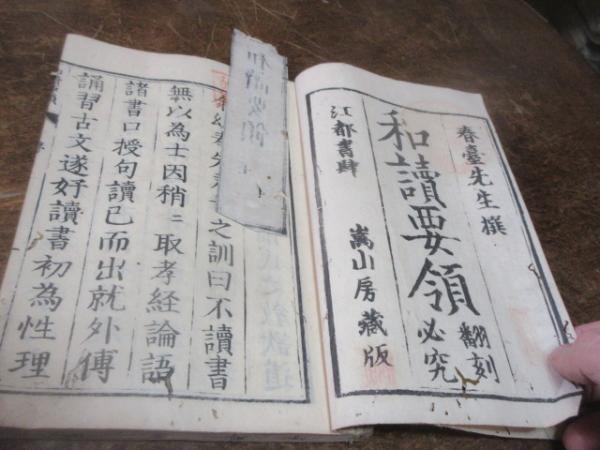 春臺先生撰
和讀要領
翻刻必究
江都書肆
嵩山房藏版
和讀要領
之訓曰不讀書
無以為士因稍二取孝経論語
諸書口授句讀已而出就外傅
誦習古文遂好讀書初為性理